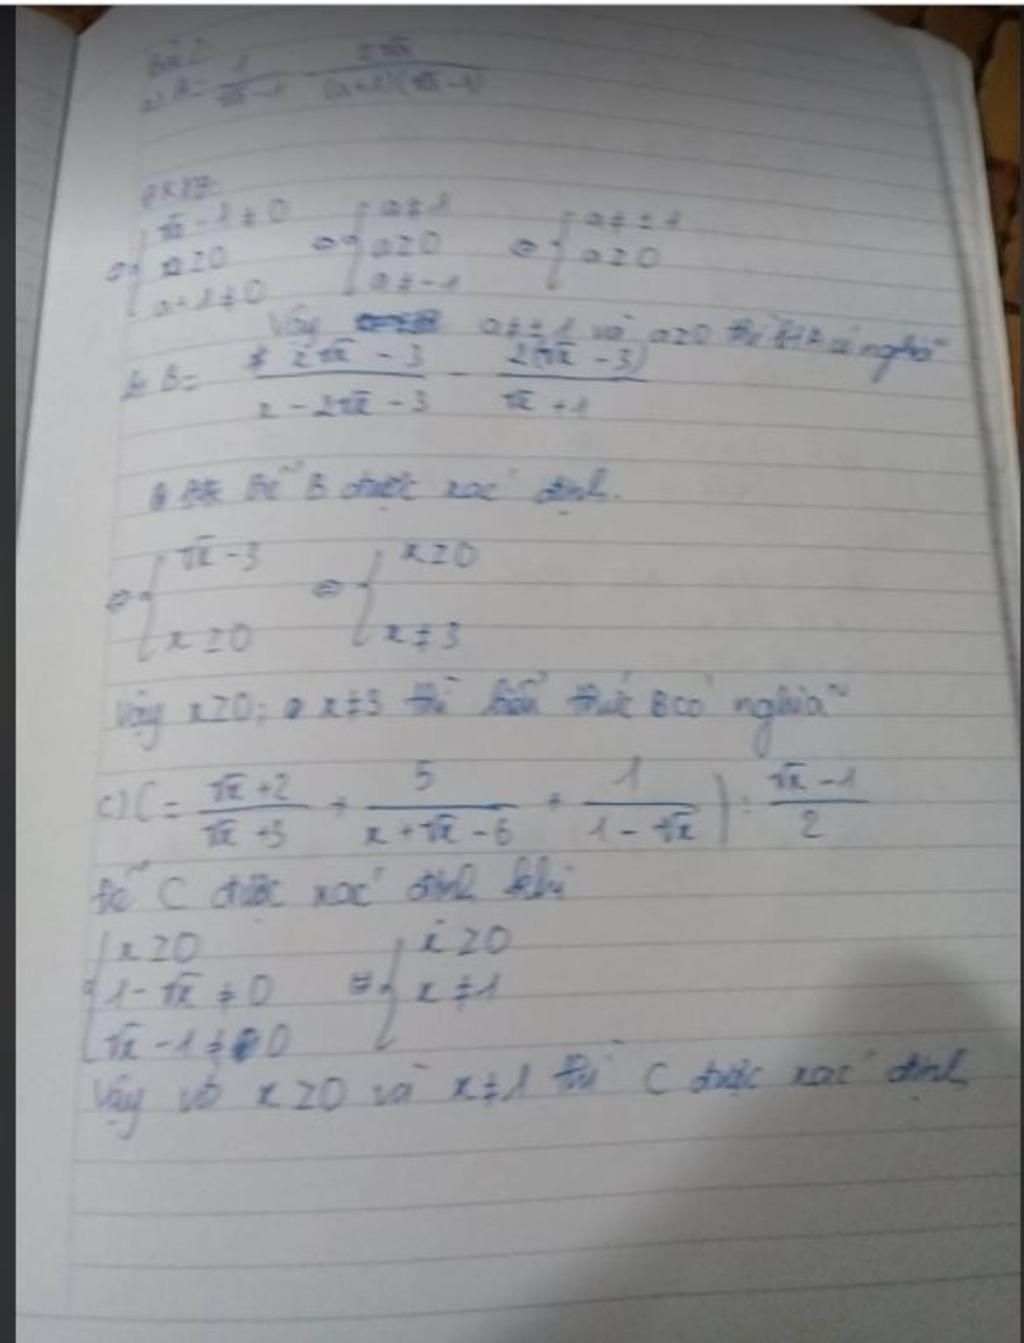 Bài 2
a) A = 1/(√a - 1) - 2√a/((a+1)(√a - 1))
ĐKXĐ:
⇔ { √a - 1 ≠ 0 ⇔ { a ≠ 1 ⇔ { a ≠ ± 1
a ≥ 0 a ≥ 0 a ≥ 0
a + 1 ≠ 0 a ≠ -1
Vậy a ≠ ± 1 và a ≥ 0 thì có nghĩa
B = (2√x - 3)/(x - 2√x - 3) - 2(√x - 3)/(√x + 1)
Để B được xác định.
⇔ { √x - 3 ⇔ { x ≥ 0
x ≥ 0 x ≠ 3
Vậy x ≥ 0; x ≠ 3 thì biểu thức B có nghĩa
c) C = (√x + 2)/(√x + 3) + 5/(x + √x - 6) + 1/(1 - √x) ) : (√x - 1)/2
Để C được xác định khi
{ x ≥ 0 ⇔ { x ≥ 0
1 - √x ≠ 0 x ≠ 1
√x - 1 ≠ 0
Vậy với x ≥ 0 và x ≠ 1 thì C được xác định